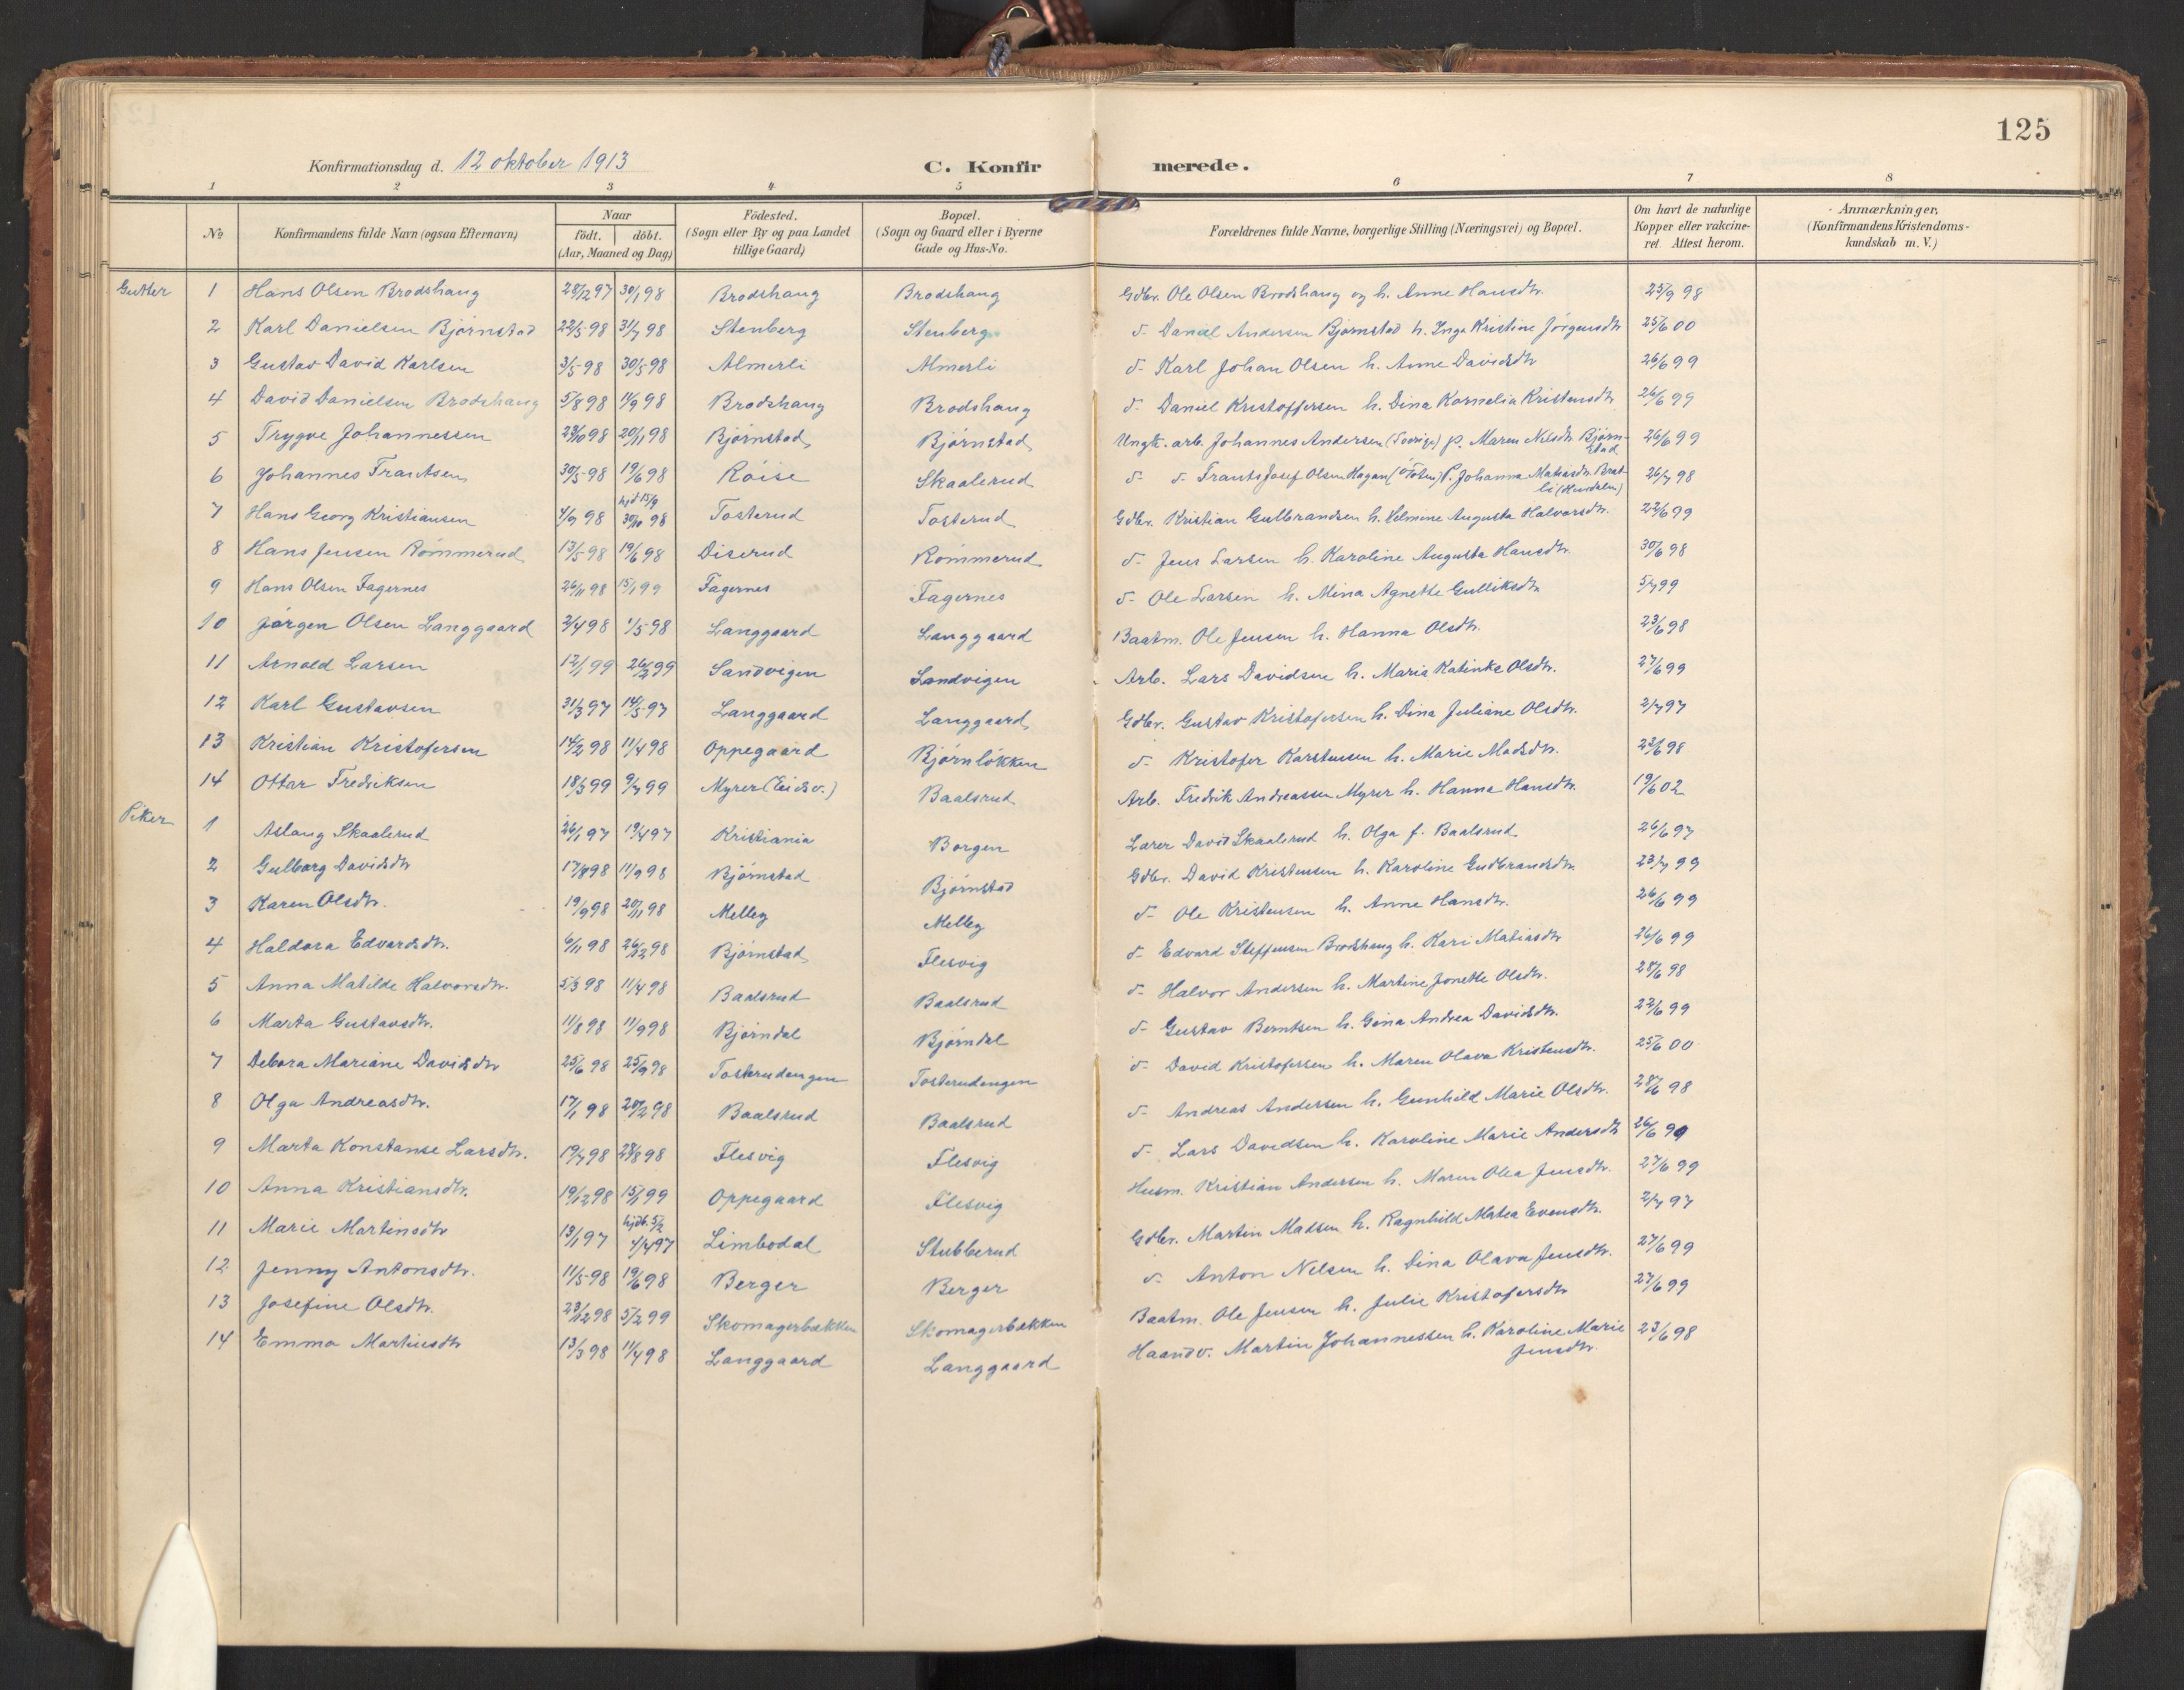 125
Konfirmationsdag d. 12 oktober 1913 C. Konfirmerede.
1 2 3 4 5 6 7 8
No Konfirmandens fulde Navn (ogsaa Efternavn) Naar födt. döbt. (Aar, Maaned og Dag) Födested. (Sogn eller By og paa Landet tillige Gaard) Bopæl. (Sogn og Gaard eller i Byerne Gade og Hus-No. Forældrenes fulde Navne, borgerlige Stilling (Næringsvei) og Bopæl. Om havt de naturlige Kopper eller vakcineret. Attest herom. Anmærkninger, (Konfirmandens Kristendomskundskab m. V.)
Gutter 1 Hans Olsen Brodshaug 28/12 97 30/1 98 Brodshaug Brodshaug Gdbr. Ole Olsen Brodshaug og h. Anne Hansdtr. 25/9 98
2 Karl Danielsen Björnstad 22/5 98 31/7 98 Stenberg Stenberg d- Daniel Andersen Björnstad h. Inga Kristine Jörgensdtr 25/6 00
3 Gustav David Karlsen 3/5 98 30/5 98 Almerli Almerli d- Karl Johan Olsen h. Anne Davidsdtr 26/6 99
4 David Danielsen Brodshaug 5/8 98 11/9 98 Brodshaug Brodshaug d- Daniel Kristoffersen h. Dina Kornelia Kristensdtr 26/6 99
5 Trygve Johannessen 23/10 98 20/11 98 Björnstad Björnstad Ungk. arb. Johannes Andersen (Sverige) p. Maren Nilsdtr. Björnstad 26/6 99
6 Johannes Frantsen 30/5 98 19/6 98 Röise Skaalerud d- d- Frants Josef Olsen Hagan (Ö Toten) P. Johanna Matiasdtr. Bratli (Hurdalen) 26/7 98
7 Hans Georg Kristiansen 4/9 98 hjd 15/9 30/10 98 Tosterud Tosterud Gdbr. Kristian Gulbrandsen h. Helmine Augusta Halvorsdtr. 22/6 99
8 Hans Jensen Römmerud 13/5 98 19/6 98 Diserud Römmerud d- Jens Larsen h. Karoline Augusta Hansdtr. 30/6 98
9 Hans Olsen Fagernes 26/11 98 15/1 99 Fagernes Fagernes d- Ole Larsen h. Mina Agnette Gulliksdtr 5/7 99
10 Jörgen Olsen Langgaard 2/4 98 1/5 98 Langgaard Langgaard Baatm. Ole Jensen h. Hanna Olsdtr. 23/6 98
11 Arnold Larsen 12/1 99 26/2 99 Sandvigen Sandvigen Arb. Lars Davidsen h. Maria Katinka Olsdtr. 27/6 99
12 Karl Gustavsen 31/3 97 14/5 97 Langgaard Langgaard Gdbr. Gustav Kristofersen h. Dina Juliane Olsdtr. 2/7 97
13 Kristian Kristofersen 14/2 98 11/4 98 Oppegaard Björnlökken d- Kristofer Karstensen h. Marie Madsdtr. 23/6 98
14 Ottar Fredriksen 18/3 99 9/7 99 Myrer (Eidsv.) Baalsrud Arb. Fredrik Andreassen Myrer h. Hanna Hansdtr. 19/6 02
Piker 1 Aslaug Skaalerud 26/1 97 19/4 97 Kristiania Borgen Lærer David Skaalerud h. Olga f. Baalsrud 26/6 97
2 Gulborg Davidsdtr 17/8 98 11/9 98 Björnstad Björnstad Gdbr. David Kristensen h. Karoline Gudbrandsdtr. 23/7 99
3 Karen Olsdtr. 19/9 98 20/11 98 Melleg Melleg d- Ole Kristensen h. Anne Hansdtr. 26/6 99
4 Haldora Edvardsdtr. 6/11 98 26/12 98 Björnstad Flesvig d- Edvard Steffensen Brodshaug h. Kari Matiasdtr 26/6 99
5 Anna Matilde Halvorsdtr. 5/3 98 11/4 98 Baalsrud Baalsrud d- Halvor Andersen h. Martine Jonette Olsdtr. 28/6 98
6 Marta Gustavsdtr. 11/8 98 11/9 98 Björndal Björndal d- Gustav Berntsen h. Gina Andrea Davidsdtr. 22/6 99
7 Debora Mariane Davidsdtr 25/6 98 25/9 98 Tosterudengen Tosterudengen d- David Kristofersen h. Maren Olava Kristensdtr. 25/6 00
8 Olga Andreasdtr. 17/1 98 20/2 98 Baalsrud Baalsrud d- Andreas Andersen h. Gunhild Marie Olsdtr. 28/6 98
9 Marta Konstanse Larsdtr. 19/7 98 28/8 98 Flesvig Flesvig d- Lars Davidsen h. Karoline Marie Andersdtr 26/6 99
10 Anna Kristiansdtr. 19/12 98 15/1 99 Oppegaard Flesvig Husm. Kristian Andersen h. Maren Olea Jensdtr. 27/6 99
11 Marie Martinsdtr 13/1 97 hjdt. 5/2 4/4 97 Limbodal Stubberud Gdbr. Martin Madsen h. Ragnhild Matea Evensdtr. 2/7 97
12 Jenny Antonsdtr. 11/5 98 19/6 98 Berger Berger d- Anton Nilsen h. Dina Olava Jensdtr. 27/6 99
13 Josefine Olsdtr. 23/12 98 5/2 99 Skomagerbækken Skomagerbækken Baatm. Ole Jensen h. Julie Kristofersdtr 27/6 99
14 Emma Martinsdtr 13/3 98 11/4 98 Langgaard Langgaard Haandv. Martin Johannessen h. Karoline Marie Jensdtr. 23/6 98